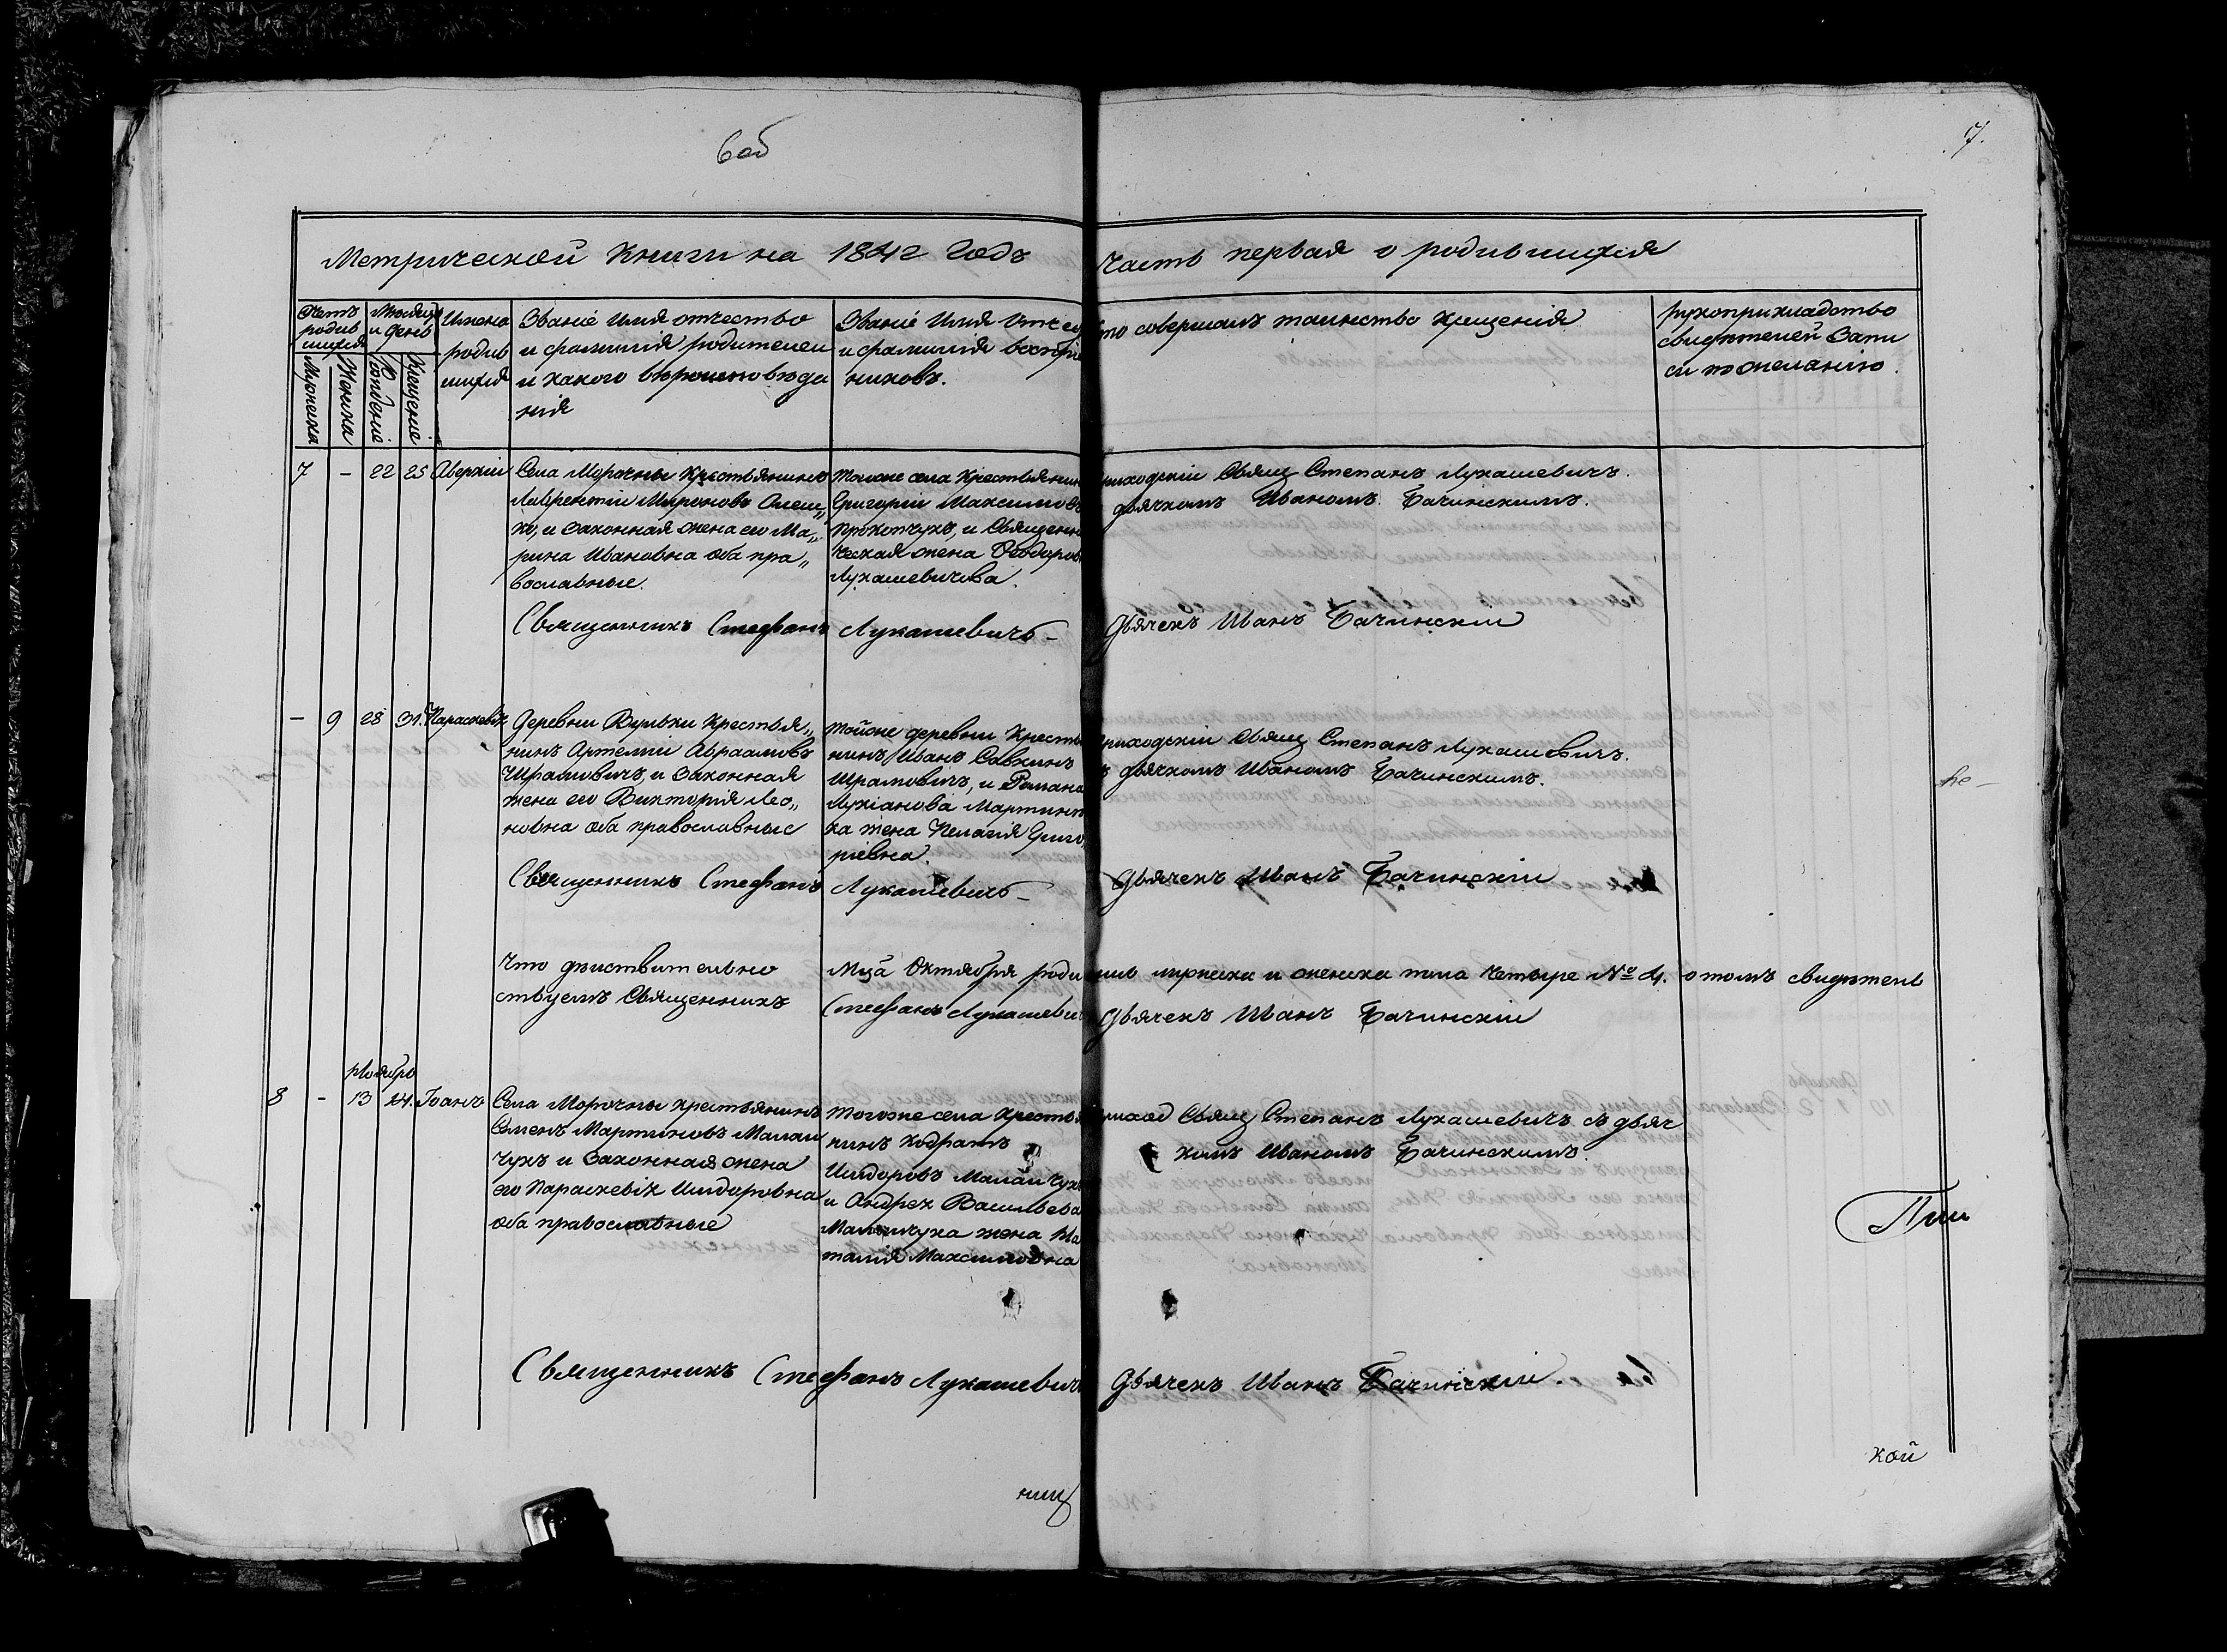 6об
7.
Метрической Книги на 1842 Годъ
Часть первая о родившихся
Счетъ родив шихся
Мужеска
Женска
Месяцъ и день
Рождение
Крещение
Имена родив шихся
Званіе Имя отчество
и фамилія родителеи
и какого вѣроисповѣда
нія
Званіе Имя Отчес
и фамилія воспріе
никовъ.
то совершалъ таинство крещенія
рукоприкладство
свидѣтелей Запи
си по желанію.
7 - 22 25 Аверкіи
Села Морочны Крестьянинъ
Лаврентіи Мироновъ Олеш„
ко, и Законная жена его Ма„
рина Ивановна оба пра„
вославные.
Тоѣже села Крестьянин
Григоріи Максимовъ
Прокопчукъ, и Священн
ческая жена Феодоров
Лукашевичова.
риходскіи Свящ Степанъ Лукашевичъ.
дьячкомъ Иваномъ Бачинскимъ.
Священникъ Стефанъ Лукашевичъ –
Дьячекъ Иванъ Бачинскіи
- 9 28 31. Параскевія
Деревни Вульки Крестья„
нинъ Артеміи Авраамовъ
Шрамовичъ и Законная
жена его Викторія Лео„
новна оба православныс
тойже деревни Кресть
нинъ Иванъ Савкинъ
Шрамовичъ, и Романа
Лукіанова Мартинп
ка жена Пелагія Григо
ріевна.
риходскіи Свящ Степанъ Лукашевичъ.
ъ дьячкомъ Иваномъ Бачинскимъ.
Священникъ Стефанъ Лукашевичъ –
Дьячекъ Иванъ Бачинскіи
Что дѣиствительно Мца Октября роди
лись мужска и женска пола четыре № 4. о томъ свидѣтель
ствуемъ Священникъ Стефанъ Лукашеви
Дьячекъ Иванъ Бачинскіи
Ноябрь
8 - 13 14. Іоанъ
Села Морочны крестьянинъ
Семенъ Мартиновъ Малаи
чукъ и Законная жена
его Параскевія Исидоровна
оба православные
Тогоже села кресть
нинъ Кодратъ
Исидоровъ Малаичук
и Андрея Васильева
Малаичука жена На
талія Максимовна
риход Свящ Степанъ Лукашевичъ съ дьяч
комъ Иваномъ Бачинскимъ.
Священникъ Стефанъ Лукашевичъ
Дьячекъ Иванъ Бачинскіи.
кой